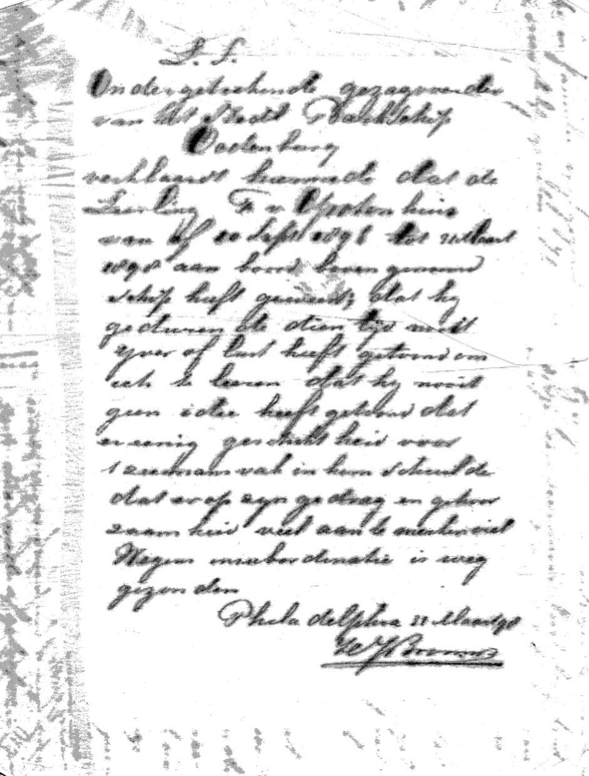 L. S.
Ondergeteekende gezagvoerder
van het Nederl Barkschip
verklaard hiermede dat de
Leerling F v
van af 10 Sept 1896 tot 22 Maart
1898 aan boord bovengenoemd
schip heeft geweest, dat hy
gedurende dien tyd nooit
yver of lust heeft getoond om
iets te leeren dat hy nooit
geen idee heeft getoond dat
er eenig geschiktheid voor
t zeemansvak in hem schuilde
dat er op zyn gedrag en gehoor
zaamheid veel aan te merken viel
Wegens insubordinatie is weg
gezonden
Philadelphia 22 Maart 98